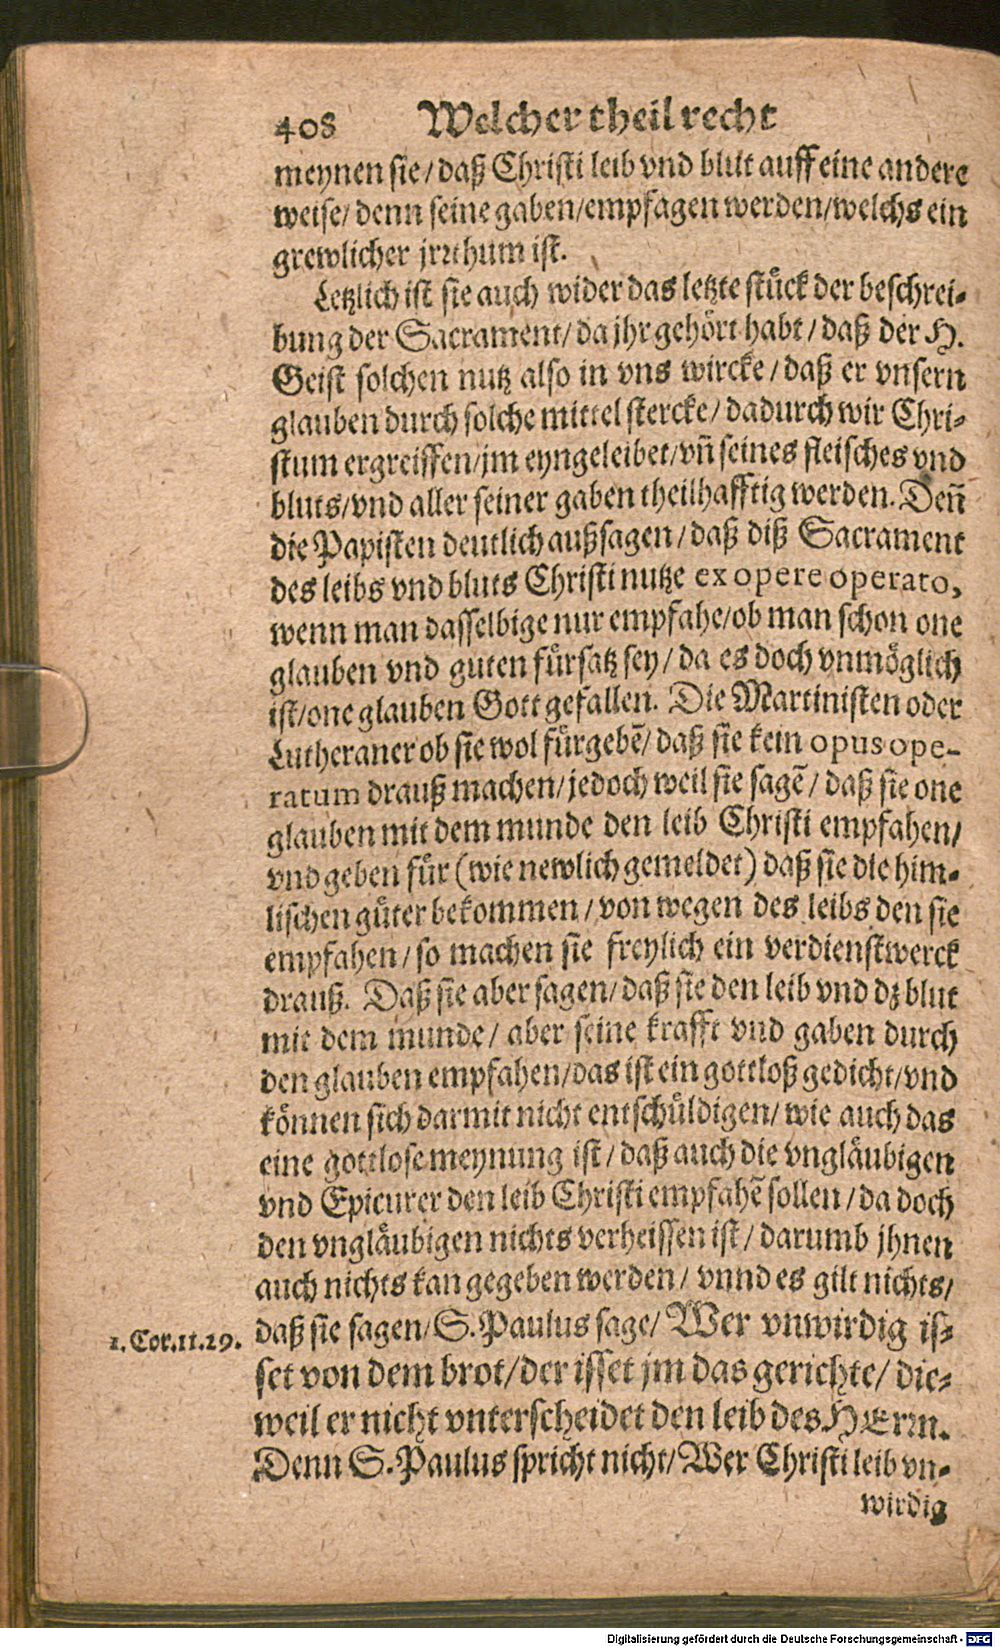 408 Welcher theil recht
meynen sie/ daß Christi leib vnd blut auff eine andere
weise/ denn seine gaben/empfagen werden/welchs ein
grewlicher jrrthum ist.
Letzlich ist sie auch wider das letzte stück der beschrei-
bung der Sacrament/ da jhr gehört habt/ daß der H.
Geist solchen nutz also in vns wircke/ daß er vnsern
glauben durch solche mittel stercke/ dadurch wir Chri-
stum ergreiffen/jm eyngeleibet/vn̄ seines fleisches vnd
bluts/vnd aller seiner gaben theilhafftig werden. Den̄
die Papisten deutlich außsagen/ daß diß Sacrament
des leibs vnd bluts Christi nutze ex opere operato,
wenn man dasselbige nur empfahe/ob man schon one
glauben vnd guten fürsatz sey/ da es doch vnmöglich
ist/one glauben Gott gefallen. Die Martinisten oder
Lutheraner ob sie wol fürgebē/ daß sie kein opus ope-
ratum drauß machen/ jedoch weil sie sagē/ daß sie one
glauben mit dem munde den leib Christi empfahen/
vnd geben für (wie newlich gemeldet) daß sie die him-
lischen güter bekommen/ von wegen des leibs den sie
empfahen/ so machen sie freylich ein verdienstwerck
drauß. Daß sie aber sagen/ daß sie den leib vnd dz blut
mit dem munde/ aber seine krafft vnd gaben durch
den glauben empfahen/das ist ein gottloß gedicht/vnd
können sich darmit nicht entschüldigen/ wie auch das
eine gottlose meynung ist/ daß auch die vngläubigen
vnd Epicurer den leib Christi empfahē sollen/ da doch
den vngläubigen nichts verheissen ist/ darumb jhnen
auch nichts kan gegeben werden/ vnnd es gilt nichts/
1. Cor. 11. 29. daß sie sagen/ S. Paulus sage/ Wer vnwirdig is-
set von dem brot/ der isset jm das gerichte/ die-
weil er nicht vnterscheidet den leib des HErrn.
Denn S. Paulus spricht nicht/ Wer Christi leib vn-
wirdig
Digitalisierung gefördert durch die Deutsche Forschungsgemeinschaft - DFG